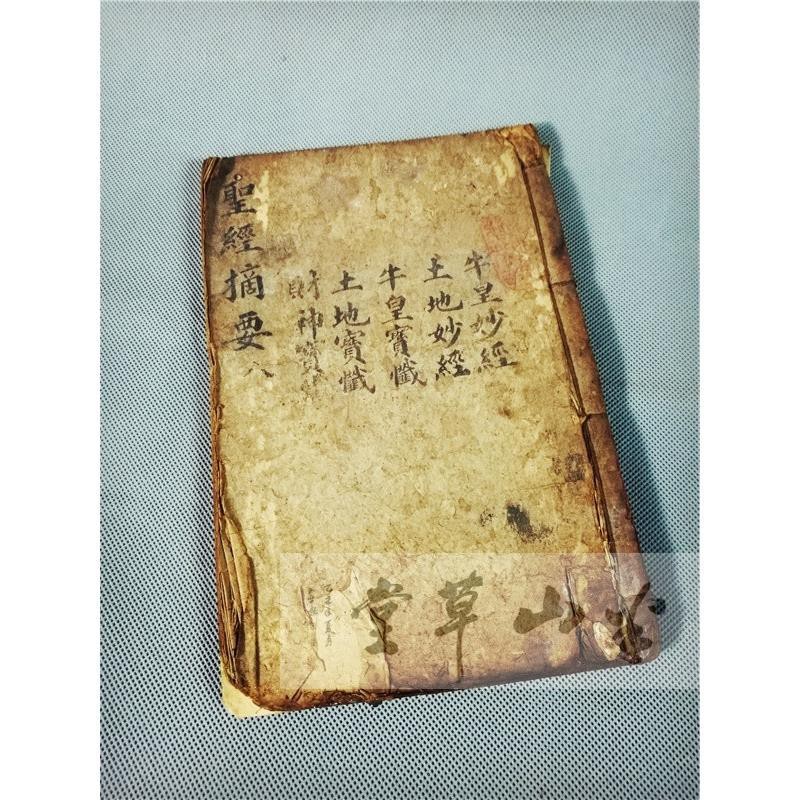 牛皇妙經
土地妙經
牛皇寶懺
土地寶懺
財神寶
聖經摘要 八
山草堂